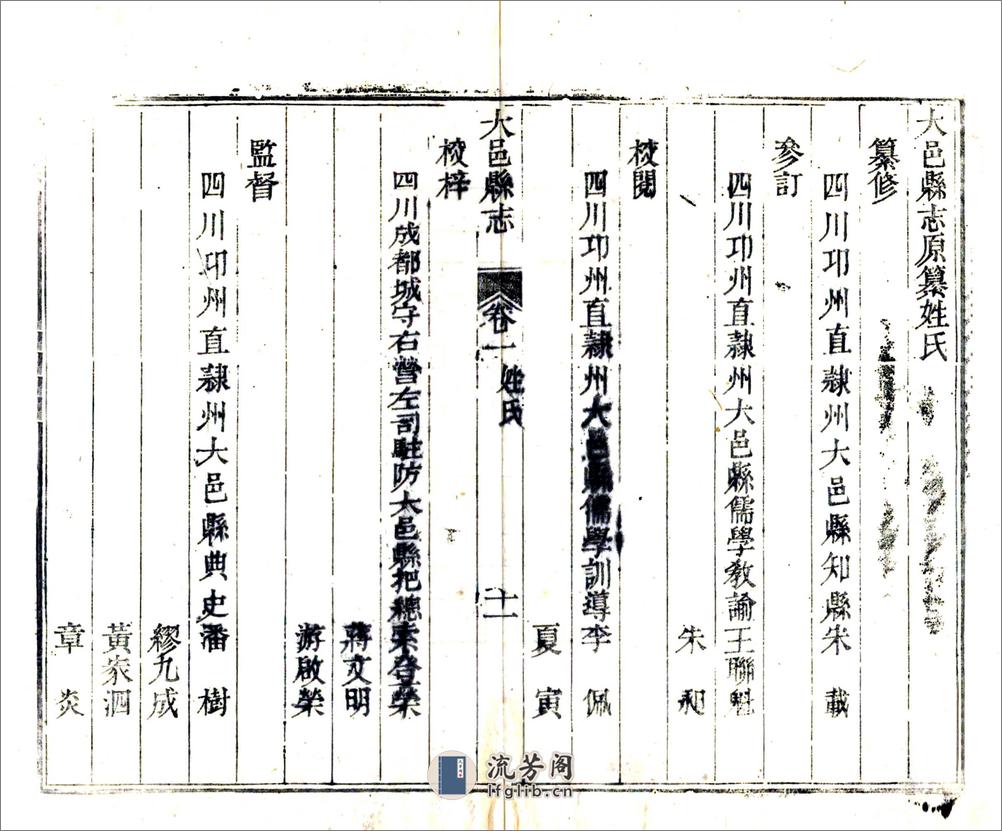 大邑縣志原纂姓氏
纂修
四川卭州直隷州大邑縣知縣宋　載
參訂
四川卭州直隷州大邑縣儒學教諭王聯魁
朱　昶
校閱
四川卭州直隷州大邑縣儒學訓導李　佩
夏　寅
大邑縣志　卷一　姓氏　十一
校梓
四川成都城守右營左司駐防大邑縣把總秦登榮
蔣文明
游啟榮
監督
四川卭州直隷州大邑縣典史潘　樹
繆九成
黃家泗
章　炎
流芳阁
lfglib.cn